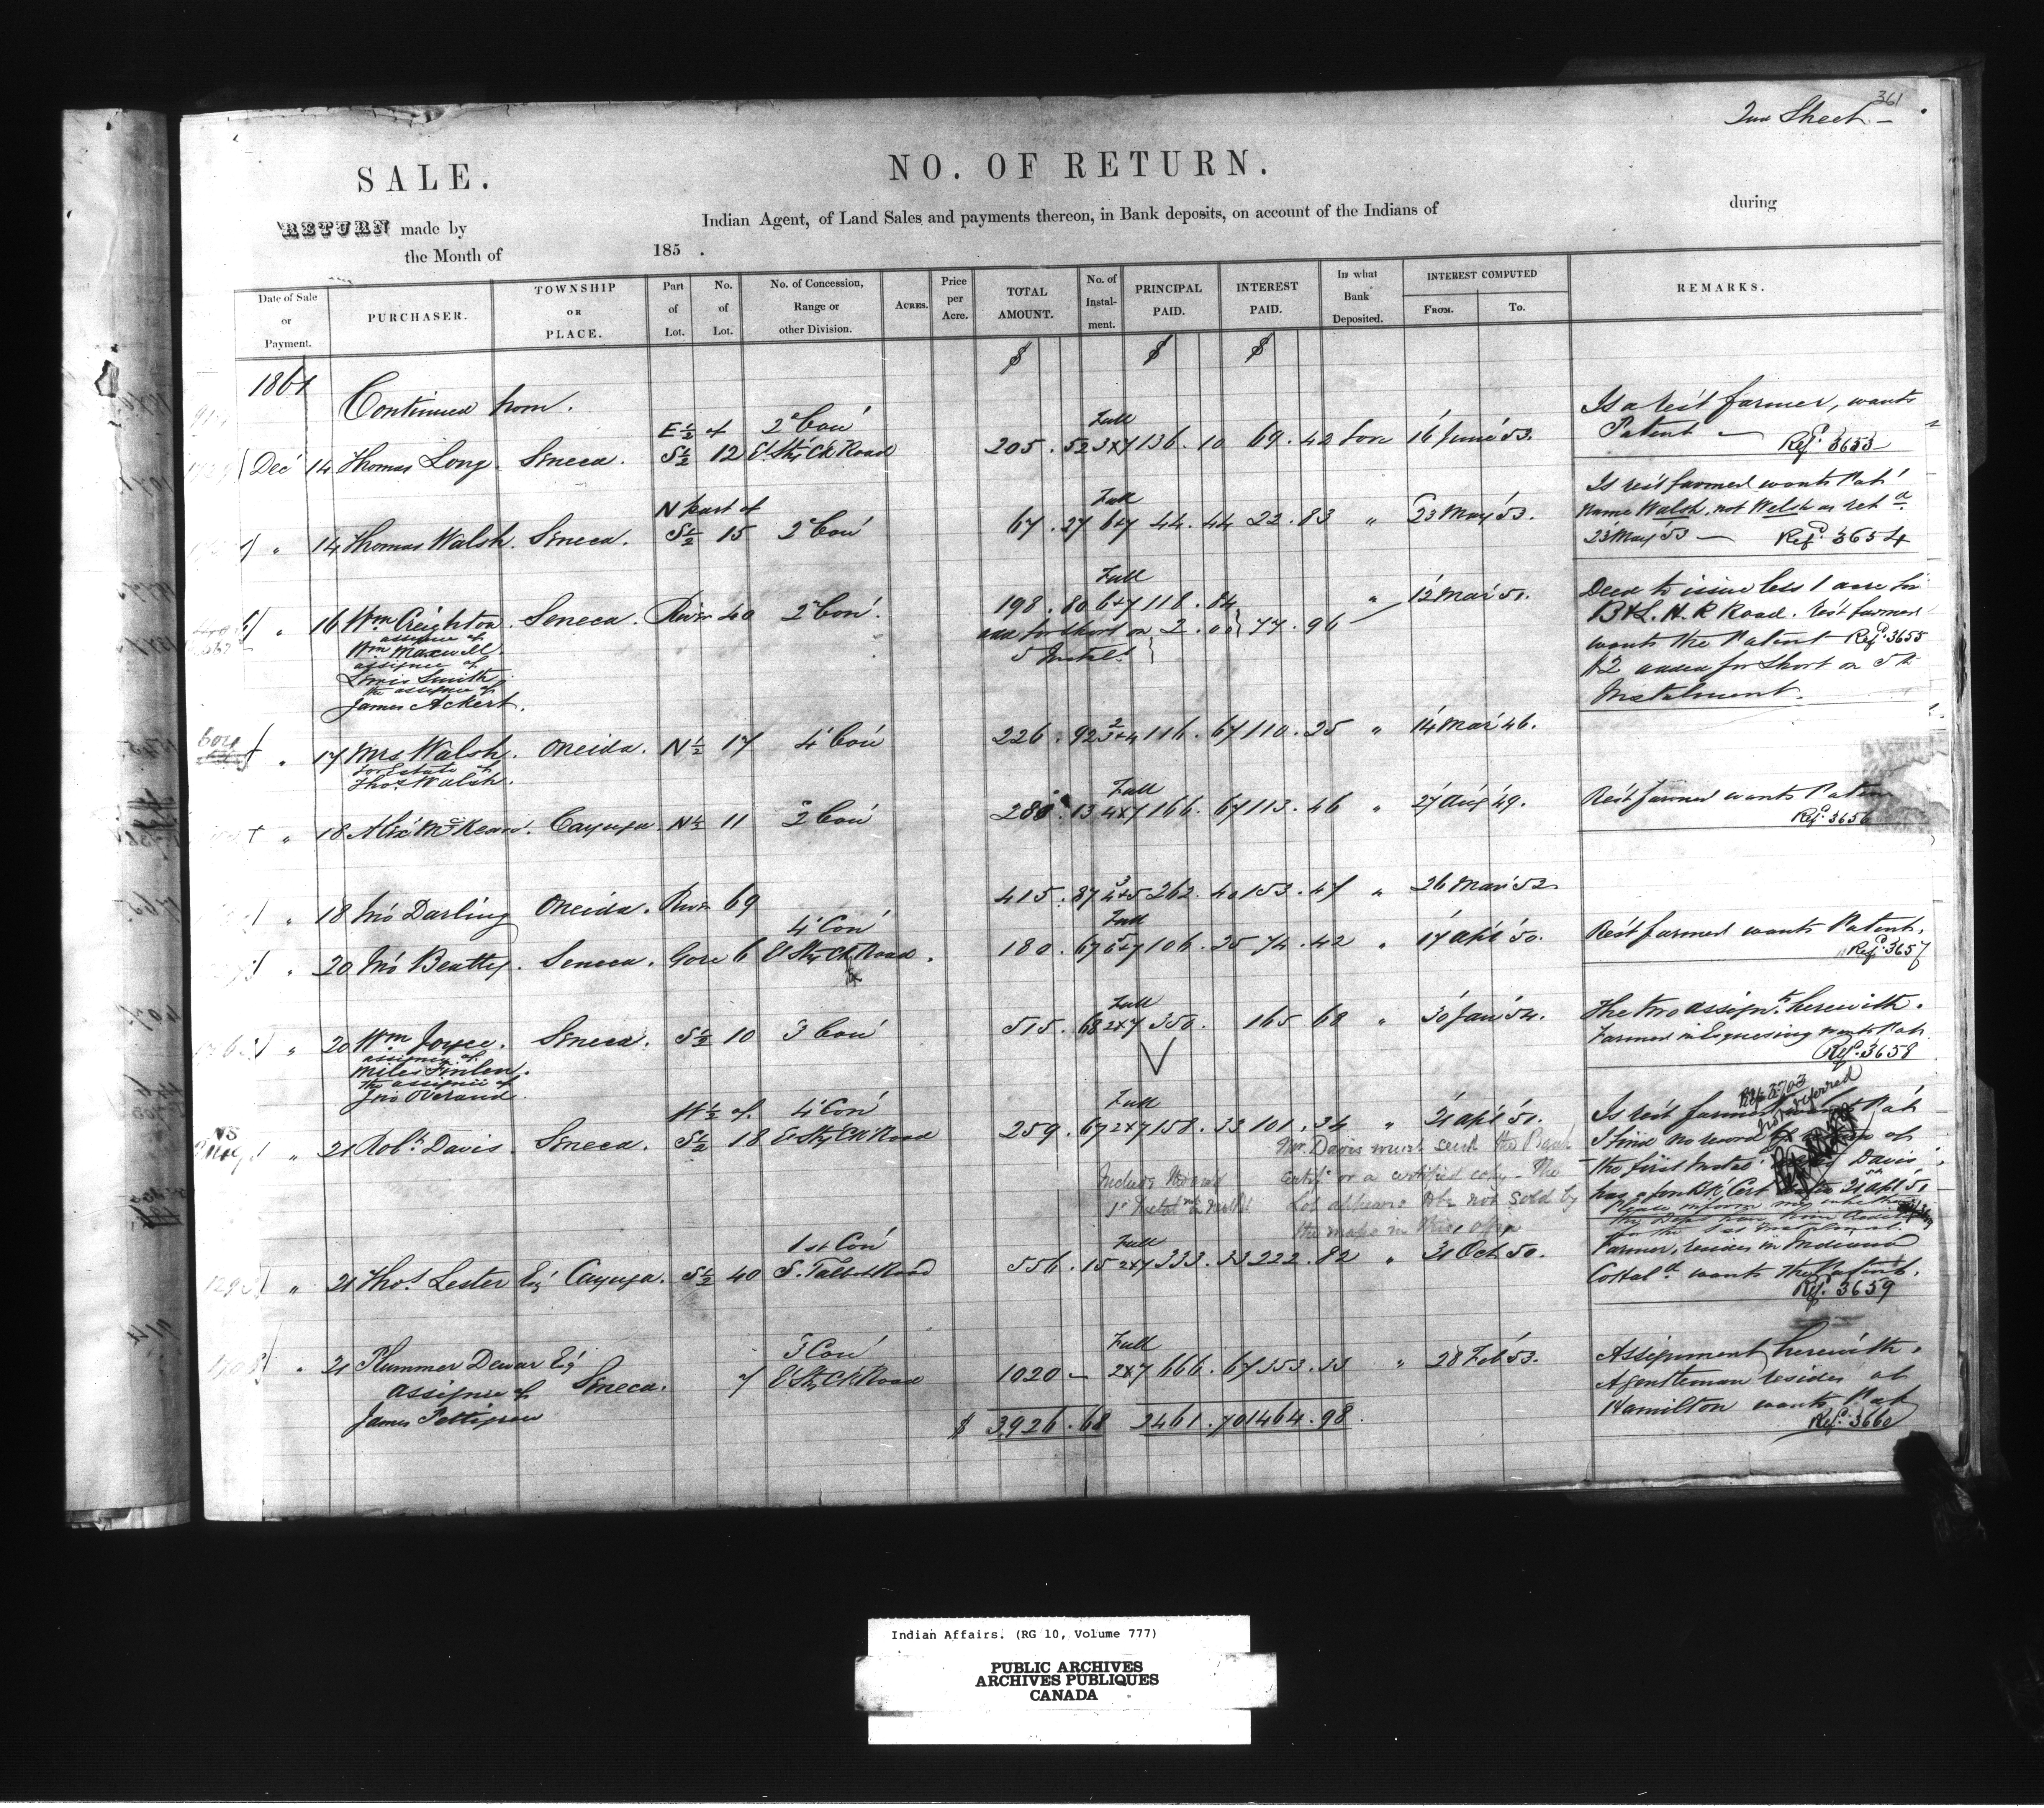 361
2nd Sheet –
SALE.
NO. OF RETURN.
RETURN made by Indian Agent, of Land Sales and payments thereon, in Bank deposits, on account of the Indians of during
the Month of 185 .
Date of Sale or Payment. PURCHASER. TOWNSHIP OR PLACE. Part of Lot. No. of Lot. No. of Concession, Range or other Division. ACRES. Price per Acre. TOTAL AMOUNT. No. of Instal- ment. PRINCIPAL PAID. INTEREST PAID. In what Bank Deposited. INTEREST COMPUTED FROM. TO. REMARKS.
$ $ $
1861
Continued from.
E ½ of 2d Con' Full Is a res't farmer, wants
Dec' 14 Thomas Long. Seneca. S ½ 12 E. Sty Ck Road 205.52 3x7 136.10 69.42 16 June '53. Patent – Refd 3653
N part of Full Is res't farmer wants Pat'
" 14 Thomas Walsh. Seneca. S ½ 15 2d Con' 67.27 6x7 44.44 22.83 " 23 May '53. name Walsh, not Welsh as retd
23 May '53 – Refd 3654
Full
" 16 Wm Creighton Seneca. River 40 2d Con'. 198.80 6x7 118.84 77.96 " 12 Mar '51. Deed to issue less 1 acre for
assignee of add for short on 2.00 B & L. H. R Road. res't farmer
Wm Maxwell 5 Instalt wants the Patent Refd 3655
assignee of $2 added for short on 5th
Lewis Smith Instalment.
the assignee of
James Ackert.
" 17 Mrs Walsh. Oneida. N ½ 17 4 Con' 226.92 2 3x4 116.67 110.25 " 14 Mar '46.
for Estate of
Thos Walsh.
Full
" 18 Alexr McKean. Cayuga. N ½ 11 2 Con' 280.13 4x7 166.67 113.46 " 27 Aug '49. Res't farmer wants Patent
Refd 3656
" 18 Jno Darling Oneida. River 69 415.87 3 4x5 262.40 153.47 " 26 Mar '52
4 Con' Full
" 20 Jno Beatty. Seneca. Gore 6 E Sty Ck Road. 180.67 6x7 106.25 74.42 " 17 Apl '50. Res't farmer wants Patent.
Refd 3657
Full
" 20 Wm Joyce. Seneca. S ½ 10 3 Con' 515.68 2x7 350. 165.68 " 30 Jan '54. The two assignts herewith.
assignee of Farmer in Esquesing wants Pat
Miles Finlen. Refd 3658
the assignee of
Jno Overand.
W ½ of 4 Con' Full Is res't farmer wants Pat
" 21 Robt Davis. Seneca. S ½ 18 E Sty Ck Road 259.67 2x7 158.33 101.34 " 21 Apl '51. I find no record of
Ref 3703
Mr. Davis must send the Bank the first Instal' Davis'
certife or a certified copy – The
Lot appears to be not sold by
the maps in this office
1st Con' Full
" 21 Thos Lester Esq Cayuga. S ½ 40 S. Talbot Road 556.15 2x7 333.33 222.82 " 31 Oct '50. Farmer, resides in Indiana
wants the Patent.
Refd 3659
3 Con' Full
" 21 Plummer Dewar Esq Seneca. 7 E Sty Ck Road 1020 – 2x7 666.67 353.33 " 28 Feb '53. Assignment herewith.
assignee of A gentleman resides at
James Pettigrew Hamilton wants Pat
$ 3926.68 2461.70 1464.98. Refd 3660
Indian Affairs. (RG 10, Volume 777)
PUBLIC ARCHIVES
ARCHIVES PUBLIQUES
CANADA